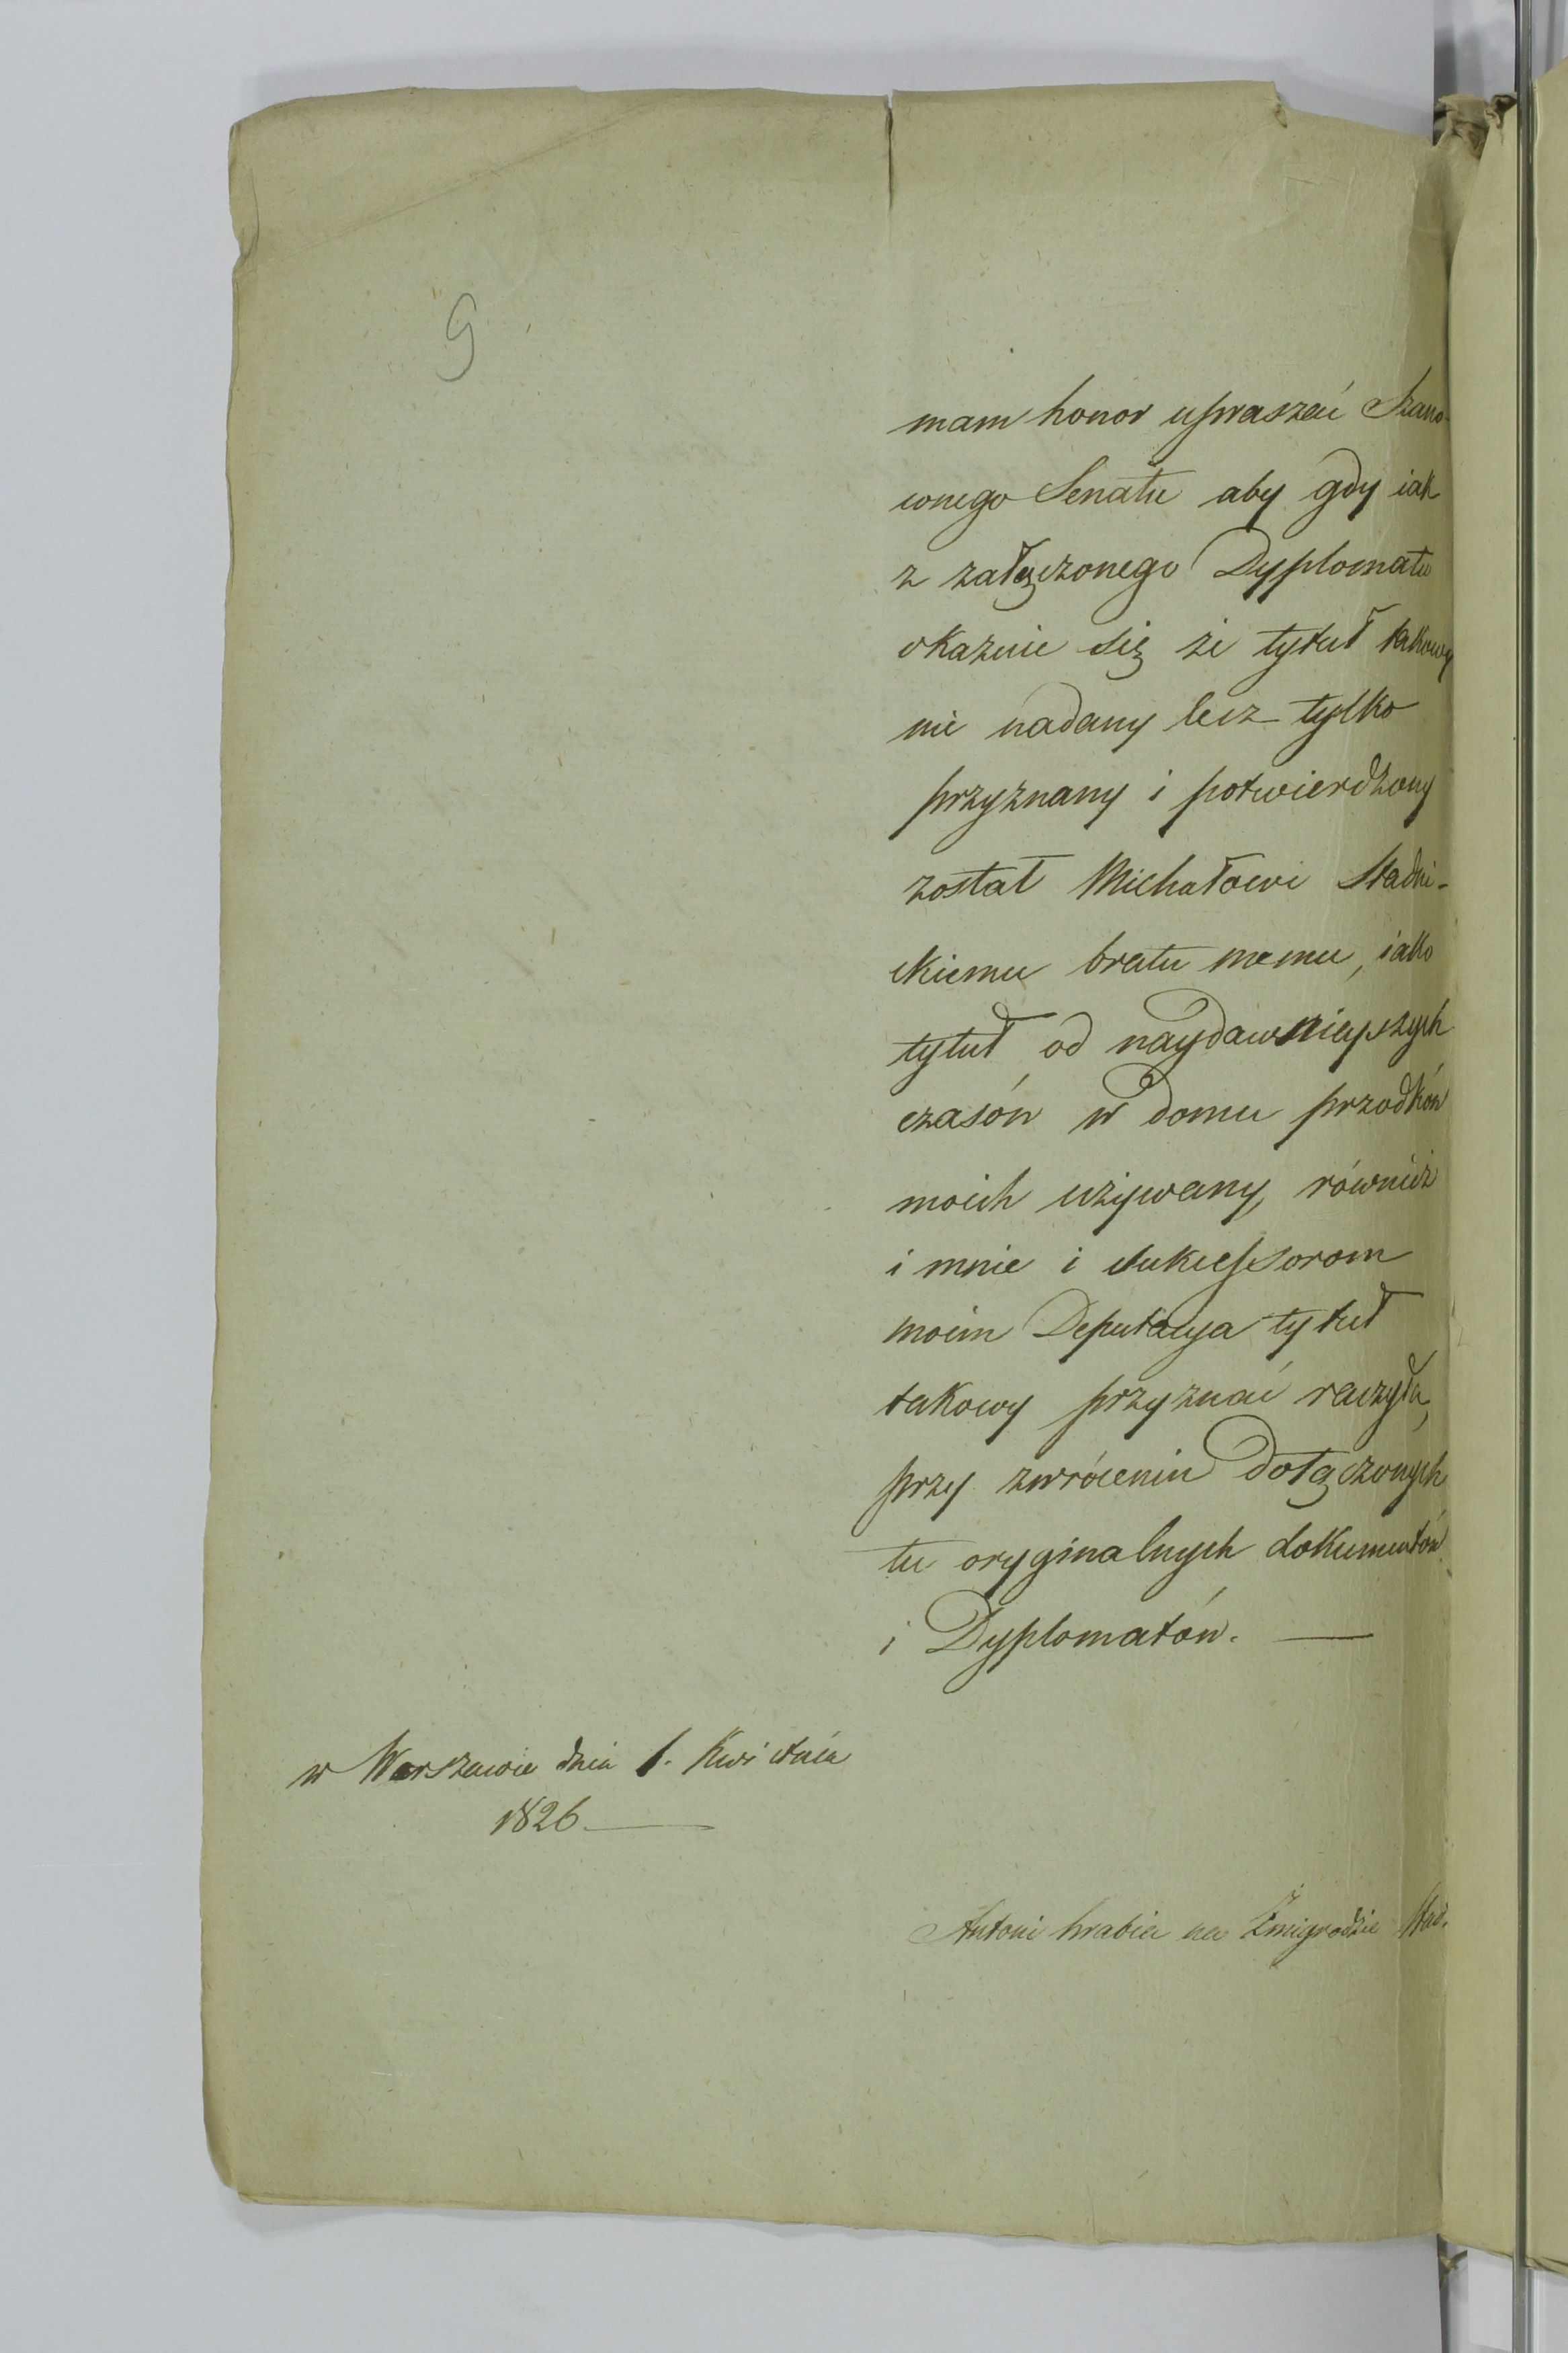 9
mam honor upraszać Szano-
wnego Senatu aby gdy iak
z załączonego Dyplomatu
okazuie się że tytuł takowy
nie nadany lecz tylko
przyznany i potwierdzony
został Michałowi Stadni-
ckiemu bratu memu, iako
tytuł od naydawnieyszych
czasów w domu przodków
moich używany, również
i mnie i sukcessorom
moim Deputacya tytuł
takowy przyznać raczyła,
przy zwróceniu dołączonych
tu oryginalnych dokumentów
i Dyplomatów.
w Warszawie dnia 1. Kwietnia
1826
Antoni hrabia na Żmigrodzie Stad.